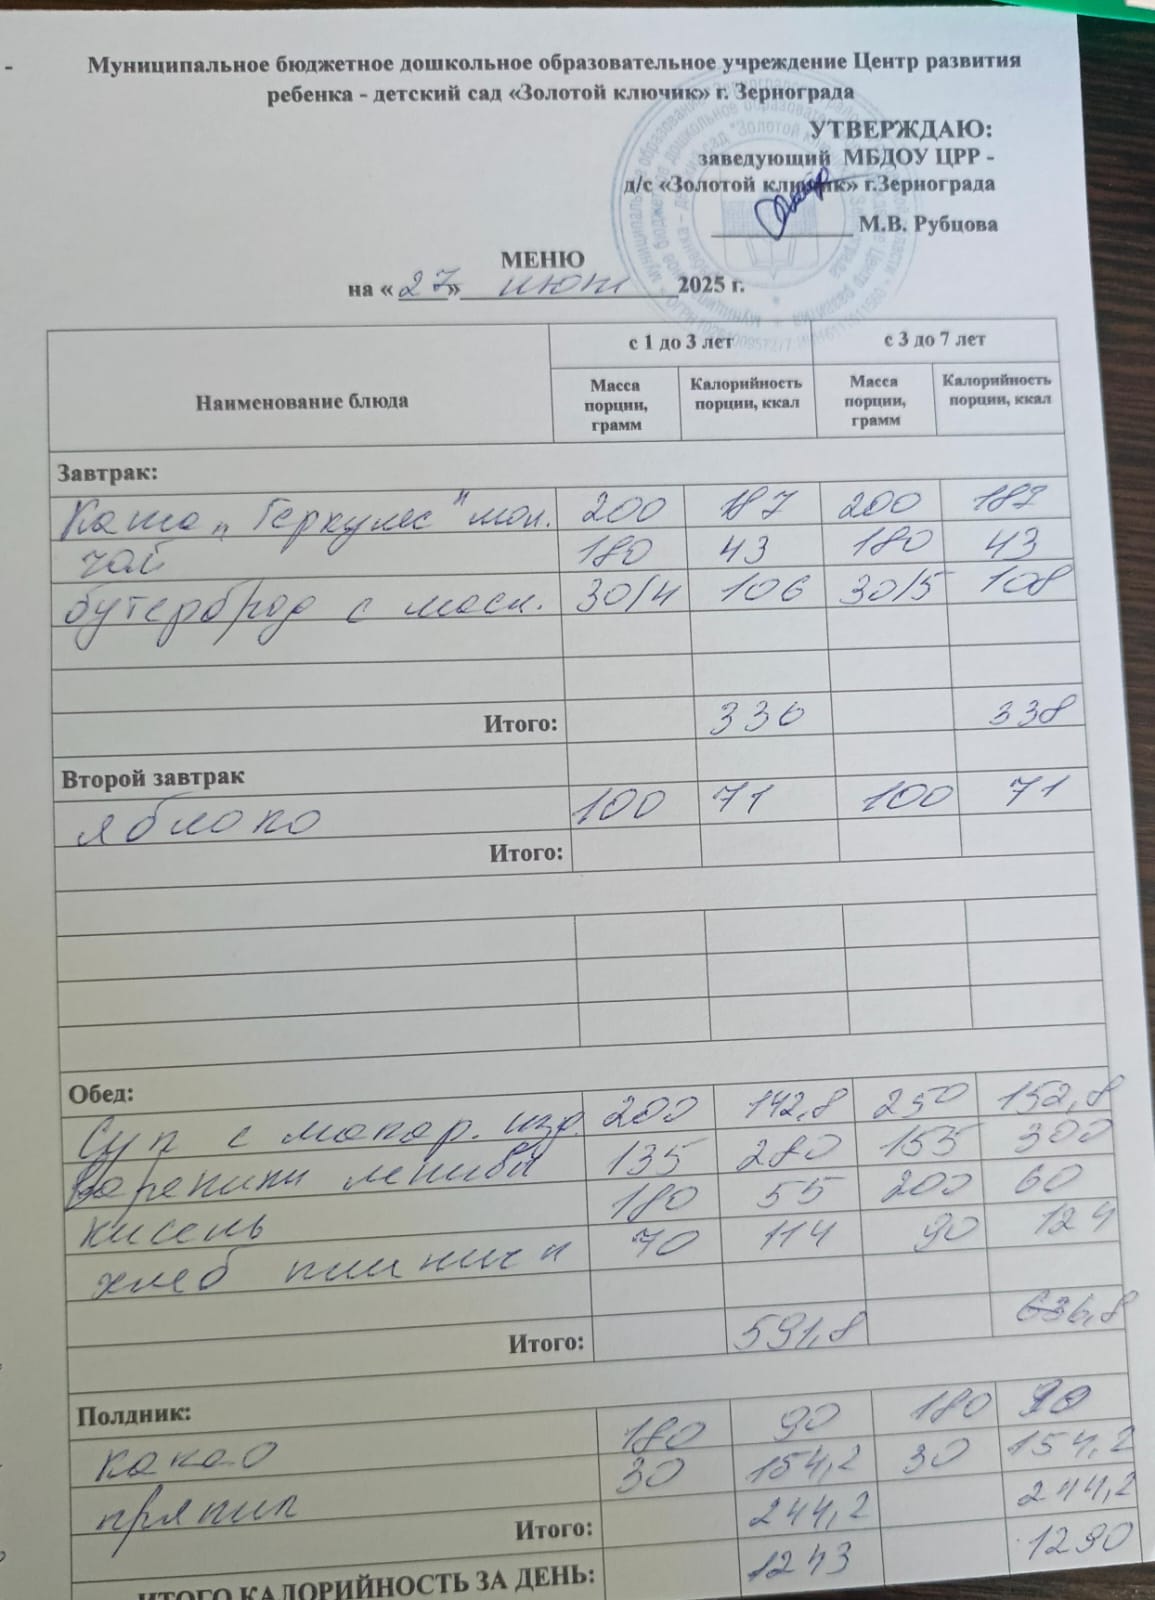 Муниципальное бюджетное дошкольное образовательное учреждение Центр развития
ребенка - детский сад «Золотой ключик» г. Зернограда
УТВЕРЖДАЮ:
заведующий МБДОУ ЦРР -
д/с «Золотой ключик» г.Зернограда
М.В. Рубцова
МЕНЮ
на «27» июня 2025 г.
Наименование блюда с 1 до 3 лет с 3 до 7 лет
Масса порции, грамм Калорийность порции, ккал Масса порции, грамм Калорийность порции, ккал
Завтрак:
Каша „Геркулес" мол. 200 187 200 187
чай 180 43 180 43
бутерброд с масл. 30/4 106 30/5 108
Итого: 336 338
Второй завтрак
яблоко 100 71 100 71
Итого:
Обед:
Суп с макар. изд. 200 142,8 250 152,8
Вареники ленивы 135 280 155 300
кисель 180 55 200 60
хлеб пшеничн 70 114 90 124
Итого: 591,8 636,8
Полдник:
какао 180 90 180 90
пряник 30 154,2 30 154,2
Итого: 244,2 244,2
ИТОГО КАЛОРИЙНОСТЬ ЗА ДЕНЬ: 1243 1290